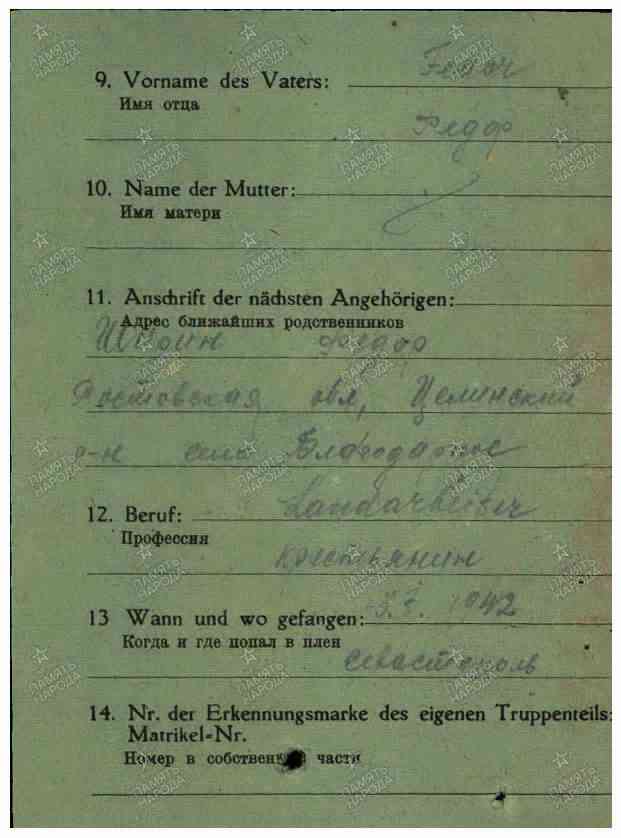 9. Vorname des Vaters: Fedor
Имя отца
Федор
10. Name der Mutter:
Имя матери
11. Anschrift der nächsten Angehörigen:
Адрес ближайших родственников
Федор
Ростовская обл, Целинский
р-н село Благодарное
12. Beruf: Landarbeiter
Профессия
крестьянин
13 Wann und wo gefangen: 1942
Когда и где попал в плен
Севастополь
14. Nr. der Erkennungsmarke des eigenen Truppenteils:
Matrikel-Nr.
Номер в собственной части
ПАМЯТЬ НАРОДА